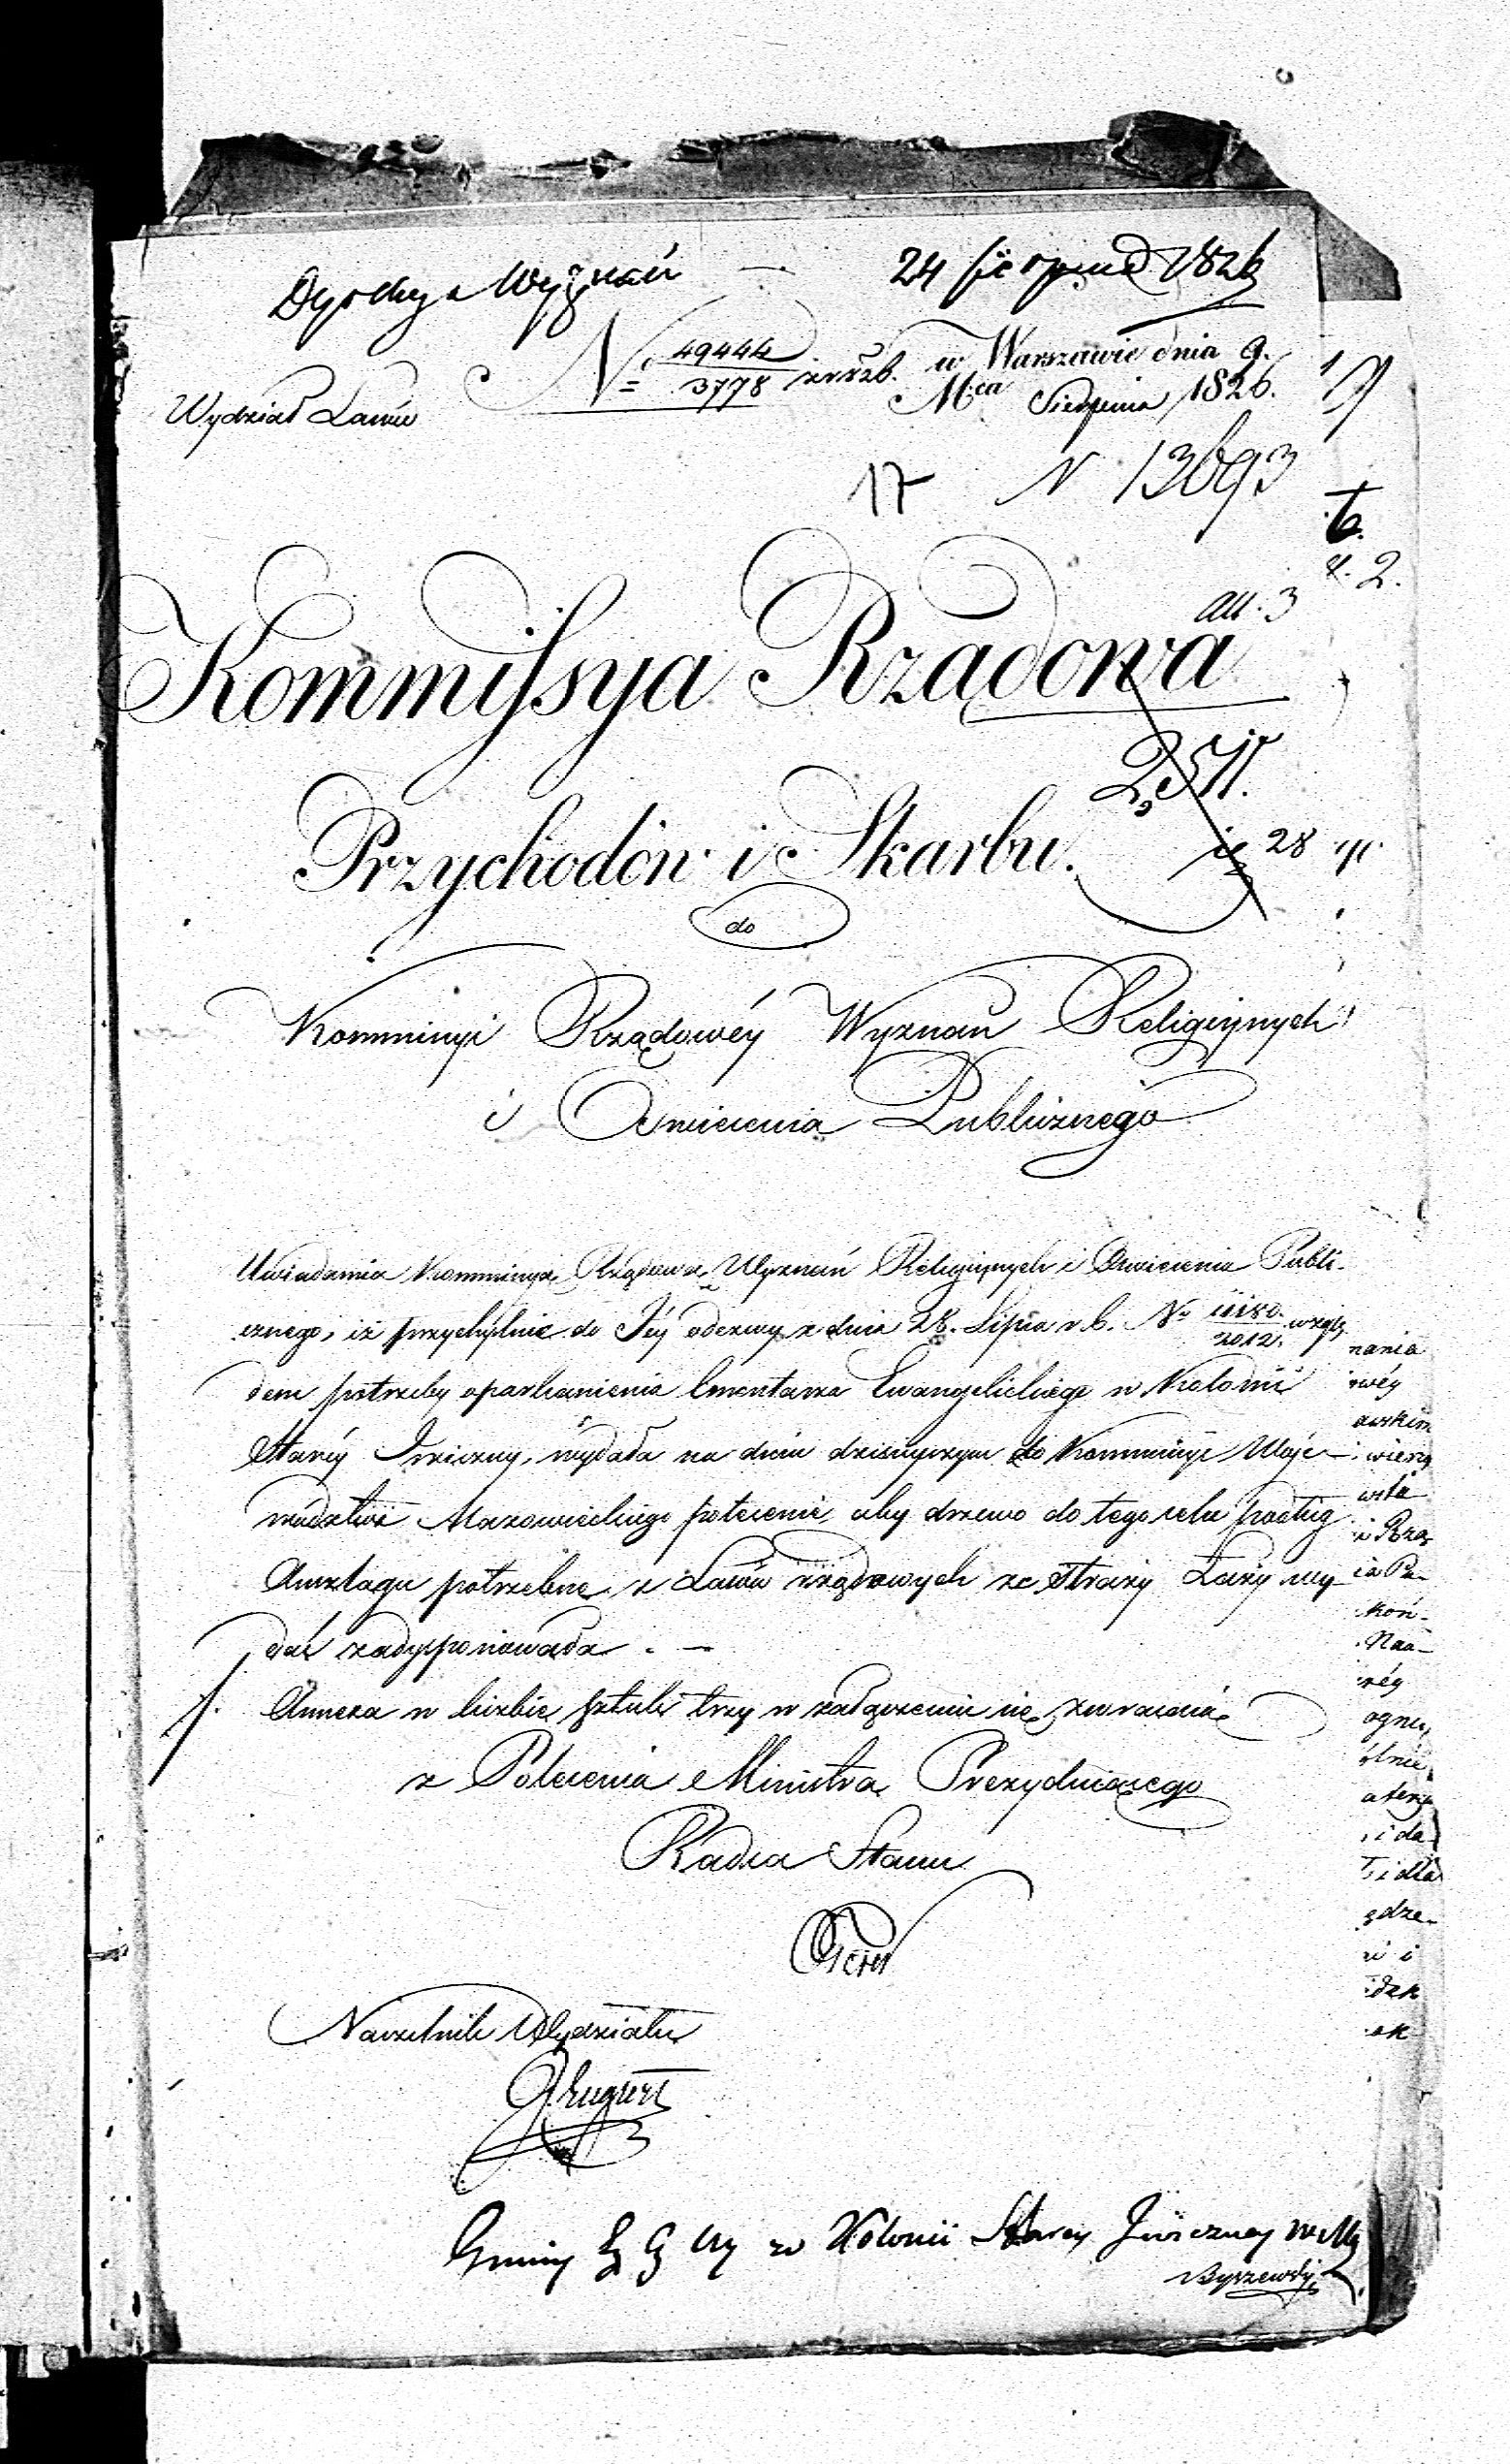 Dyrekcya Wyznań — 24 sierpnia 1826
N= 49444/3778 w Warszawie dnia 9.
Wydział Lasów Mca Sierpnia 1826.
17 N 13693
all. 3
2.
Kommissya Rządowa
Przychodów i Skarbu.
28
do
Kommissyi Rządowéy Wyznań Religiynych
i Oswiecenia Publicznego
Uwiadamia Kommissyą Rządową Wyznań Religiynych i Oswiecenia Publi-
cznego, iż przychylnie do Jéy odezwy z dnia 28. Lipca r. b. No 11180/2012. wzglę
dem potrzeby oparkanienia Cmentarza Ewangelickiego w Kolonii
Staréy Iwiczny, wydała na dniu dzisieyszym do Kommissyi Woje-
wództwa Mazowieckiego polecenie, aby drzewo do tego celu podług
Anszlagu potrzebne, z Lasów rządowych ze Straży Łazy wy
dać zadysponowała. —
Annexa w liczbie sztuk trzy w załączeniu się zwracaią
z Polecenia Ministra Prezyduiącego
Radca Stanu
Naczelnik Wydziału
Gminy E G W w Kolonii Starey Iwiczney
nania
rwéy
awskim
wierz
wsta
i Rzą
ia Pu-
koń-
Naa-
réy
ognu,
ólnie
atery
, i da-
i dla
ądze-
i
dzk
ak